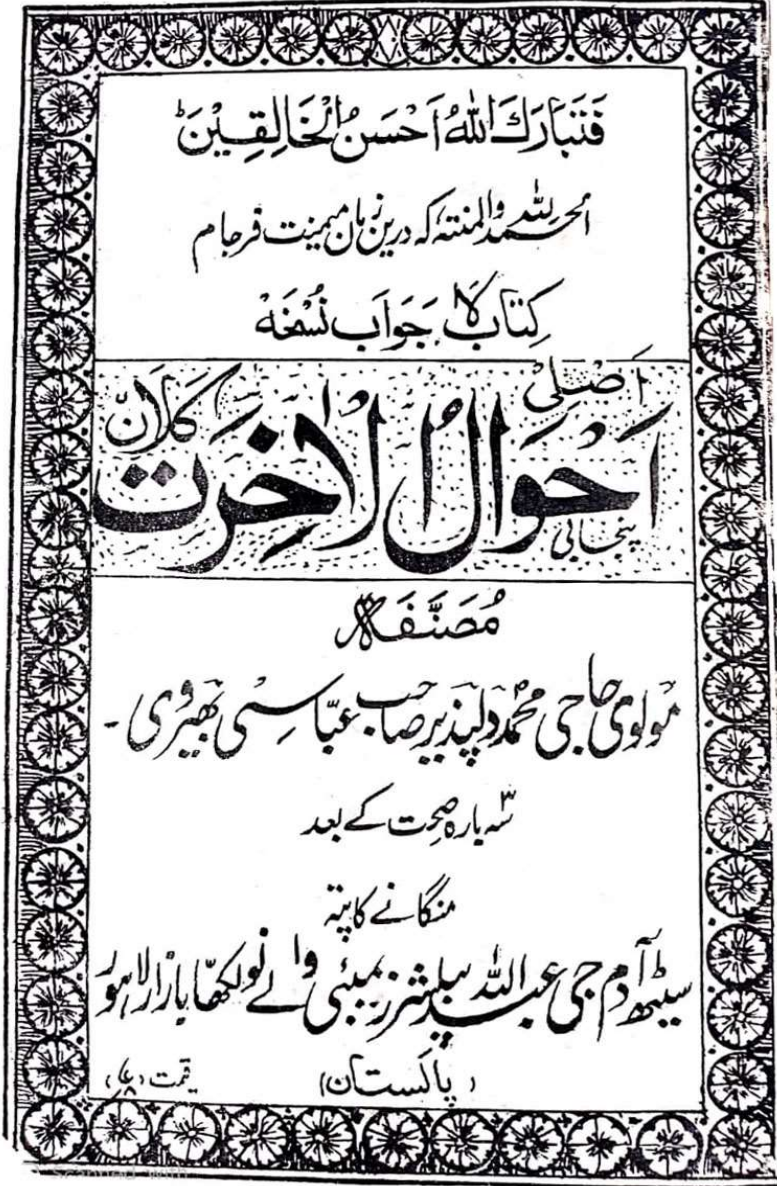 فَتَبَارَكَ اللهُ اَحْسَنُ الْخَالِقِيْنَ ط
الحمد للہ والمنتہ کہ درین زمان میمینت فرجام
کِتَاب لَا جَوَاب نُسْخَہ
اَصْلِی
اَحْوَالُ الْاٰخِرَت کَلَاں
پنجابی
مُصَنَّفَہ
مولوی حاجی محمد دلپذیر صاحب عبّاسی بھیروی۔
سہ بارہ صحت کے بعد
منگانے کا پتہ
سیٹھ آدم جی عبد اللہ پبلیشرز بمبئی والے نولکھّا بازار لاہور
(پاکستان)
قیمت
scanned with